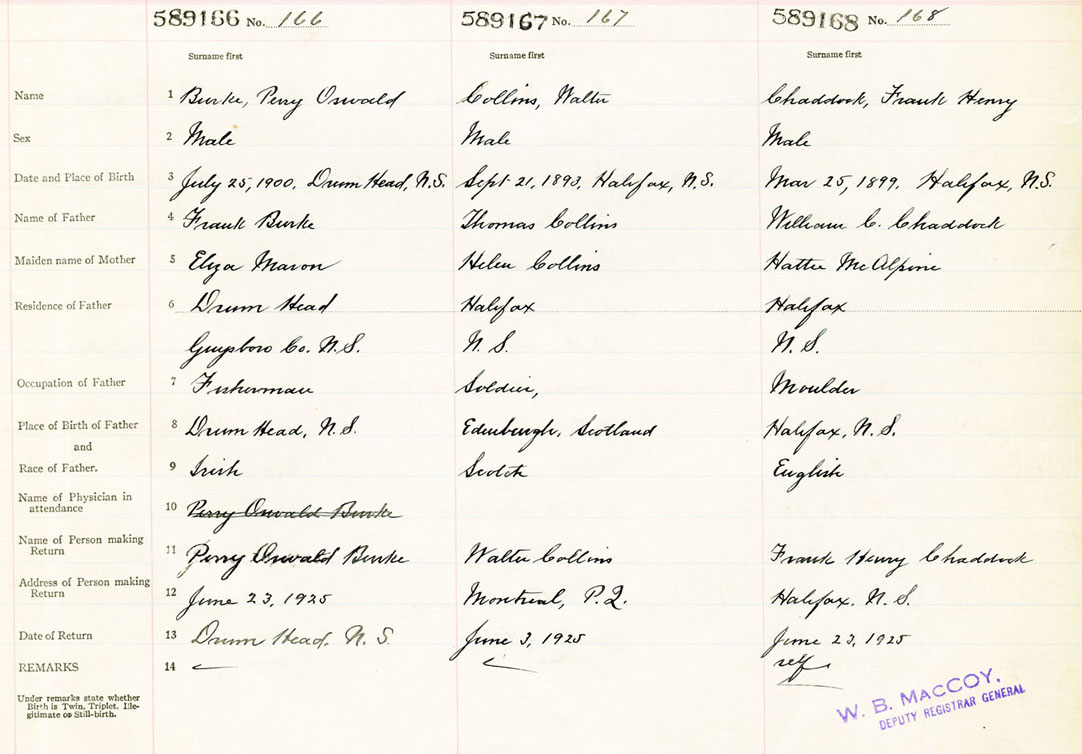 589166 No. 166 589167 No. 167 589168 No. 168
Surname first Surname first Surname first
Name 1 Burke, Perry Oswald Collins, Walter Chaddock, Frank Henry
Sex 2 Male Male Male
Date and Place of Birth 3 July 25, 1900, Drum Head, N.S. Sept 21, 1893, Halifax, N.S. Mar 25, 1899, Halifax, N.S.
Name of Father 4 Frank Burke Thomas Collins William C. Chaddock
Maiden name of Mother 5 Eliza Mason Helen Collins Hattie McAlpine
Residence of Father 6 Drum Head Halifax Halifax
Guysboro Co. N.S. N. S. N. S.
Occupation of Father 7 Fisherman Soldier, Moulder
Place of Birth of Father 8 Drum Head, N.S. Edenbeurgh, Scotland Halifax, N.S.
and
Race of Father. 9 Irish Scotch English
Name of Physician in
attendance 10 Perry Oswald Burke
Name of Person making
Return 11 Perry Oswald Burke Walter Collins Frank Henry Chaddock
Address of Person making
Return 12 June 23, 1925 Montreal, P.Q. Halifax, N.S.
Date of Return 13 Drum Head, N.S. June 3, 1925 June 23, 1925
REMARKS 14 self
Under remarks state whether
Birth is Twin, Triplet, Ille-
gitimate or Still-birth.
W. B. MACCOY,
DEPUTY REGISTRAR GENERAL